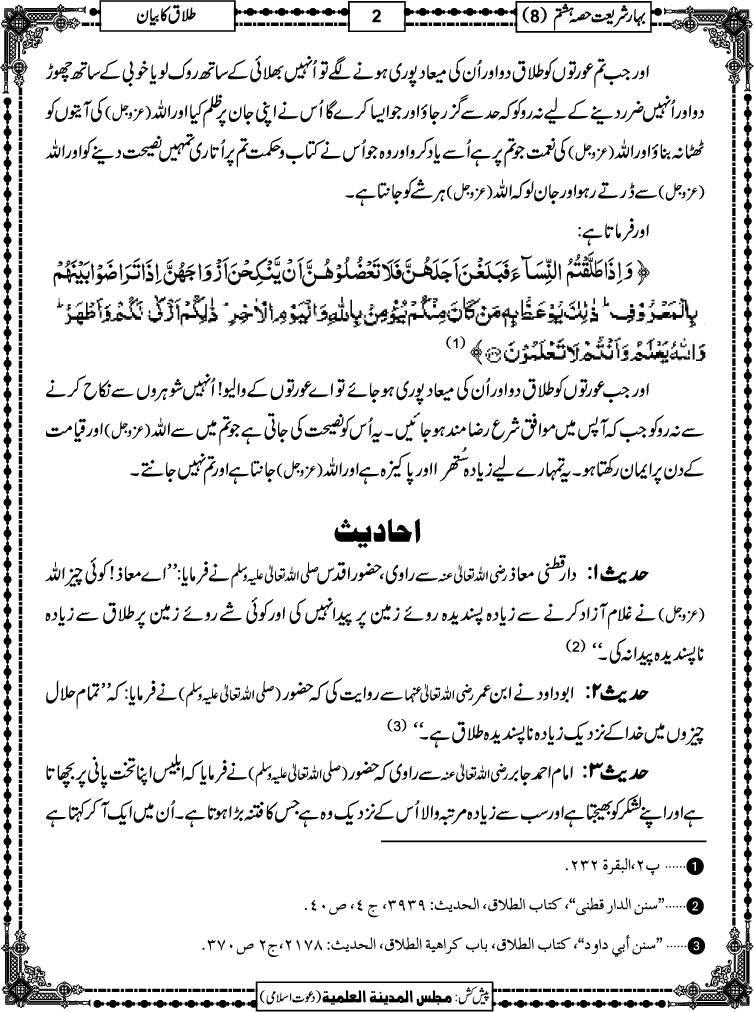 بہار شریعت حصہ ہشتم (8)
2
طلاق کا بیان
اور جب تم عورتوں کو طلاق دو اور اُن کی میعاد پوری ہونے لگے تو اُنہیں بھلائی کے ساتھ روک لو یا خوبی کے ساتھ چھوڑ
دو اور اُنہیں ضرر دینے کے لیے نہ روکو کہ حد سے گزر جاؤ اور جو ایسا کرے گا اُس نے اپنی جان پر ظلم کیا اور اللہ (عزوجل) کی آیتوں کو
ٹھٹا نہ بناؤ اور اللہ (عزوجل) کی نعمت جو تم پر ہے اُسے یاد کرو اور وہ جو اُس نے کتاب و حکمت تم پر اُتاری تمہیں نصیحت دینے کو اور اللہ
(عزوجل) سے ڈرتے رہو اور جان لو کہ اللہ (عزوجل) ہر شے کو جانتا ہے۔
اور فرماتا ہے:
﴿ وَ اِذَا طَلَّقْتُمُ النِّسَآءَ فَبَلَغْنَ اَجَلَهُنَّ فَلَا تَعْضُلُوْهُنَّ اَنْ یَّنْكِحْنَ اَزْوَاجَهُنَّ اِذَا تَرَاضَوْا بَیْنَهُمْ
بِالْمَعْرُوْفِؕ ذٰلِكَ یُوْعَظُ بِهٖ مَنْ كَانَ مِنْكُمْ یُؤْمِنُ بِاللّٰهِ وَ الْیَوْمِ الْاٰخِرِؕ ذٰلِكُمْ اَزْكٰى لَكُمْ وَ اَطْهَرُؕ
وَ اللّٰهُ یَعْلَمُ وَ اَنْتُمْ لَا تَعْلَمُوْنَ ﴾ (1)
اور جب عورتوں کو طلاق دو اور اُن کی میعاد پوری ہو جائے تو اے عورتوں کے والیو! اُنہیں شوہروں سے نکاح کرنے
سے نہ روکو جب کہ آپس میں موافق شرع رضا مند ہو جائیں۔ یہ اُس کو نصیحت کی جاتی ہے جو تم میں سے اللہ (عزوجل) اور قیامت
کے دن پر ایمان رکھتا ہو۔ یہ تمہارے لیے زیادہ سُتھرا اور پاکیزہ ہے اور اللہ (عزوجل) جانتا ہے اور تم نہیں جانتے۔
احادیث
حدیث ۱: دارقطنی معاذ رضی اللہ تعالیٰ عنہ سے راوی، حضور اقدس صلی اللہ تعالیٰ علیہ وسلم نے فرمایا: ’’اے معاذ! کوئی چیز اللہ
(عزوجل) نے غلام آزاد کرنے سے زیادہ پسندیدہ روئے زمین پر پیدا نہیں کی اور کوئی شے روئے زمین پر طلاق سے زیادہ
ناپسندیدہ پیدا نہ کی۔‘‘ (2)
حدیث ۲: ابو داود نے ابن عمر رضی اللہ تعالیٰ عنہما سے روایت کی کہ حضور (صلی اللہ تعالیٰ علیہ وسلم) نے فرمایا: کہ ’’تمام حلال
چیزوں میں خدا کے نزدیک زیادہ ناپسندیدہ طلاق ہے۔‘‘ (3)
حدیث ۳: امام احمد جابر رضی اللہ تعالیٰ عنہ سے راوی کہ حضور (صلی اللہ تعالیٰ علیہ وسلم) نے فرمایا کہ ابلیس اپنا تخت پانی پر بچھاتا
ہے اور اپنے لشکر کو بھیجتا ہے اور سب سے زیادہ مرتبہ والا اُس کے نزدیک وہ ہے جس کا فتنہ بڑا ہوتا ہے۔ اُن میں ایک آ کر کہتا ہے
1 ...... پ۲، البقرة ۲۳۲.
2 ......"سنن الدار قطنی"، کتاب الطلاق، الحدیث: ۳۹۳۹، ج٤، ص٤٠.
3 ...... "سنن أبي داود"، کتاب الطلاق، باب کراهية الطلاق، الحدیث: ۲۱۷۸، ج۲ ص۳۷۰.
پیش کش: مجلس المدينة العلمية (دعوت اسلامی)